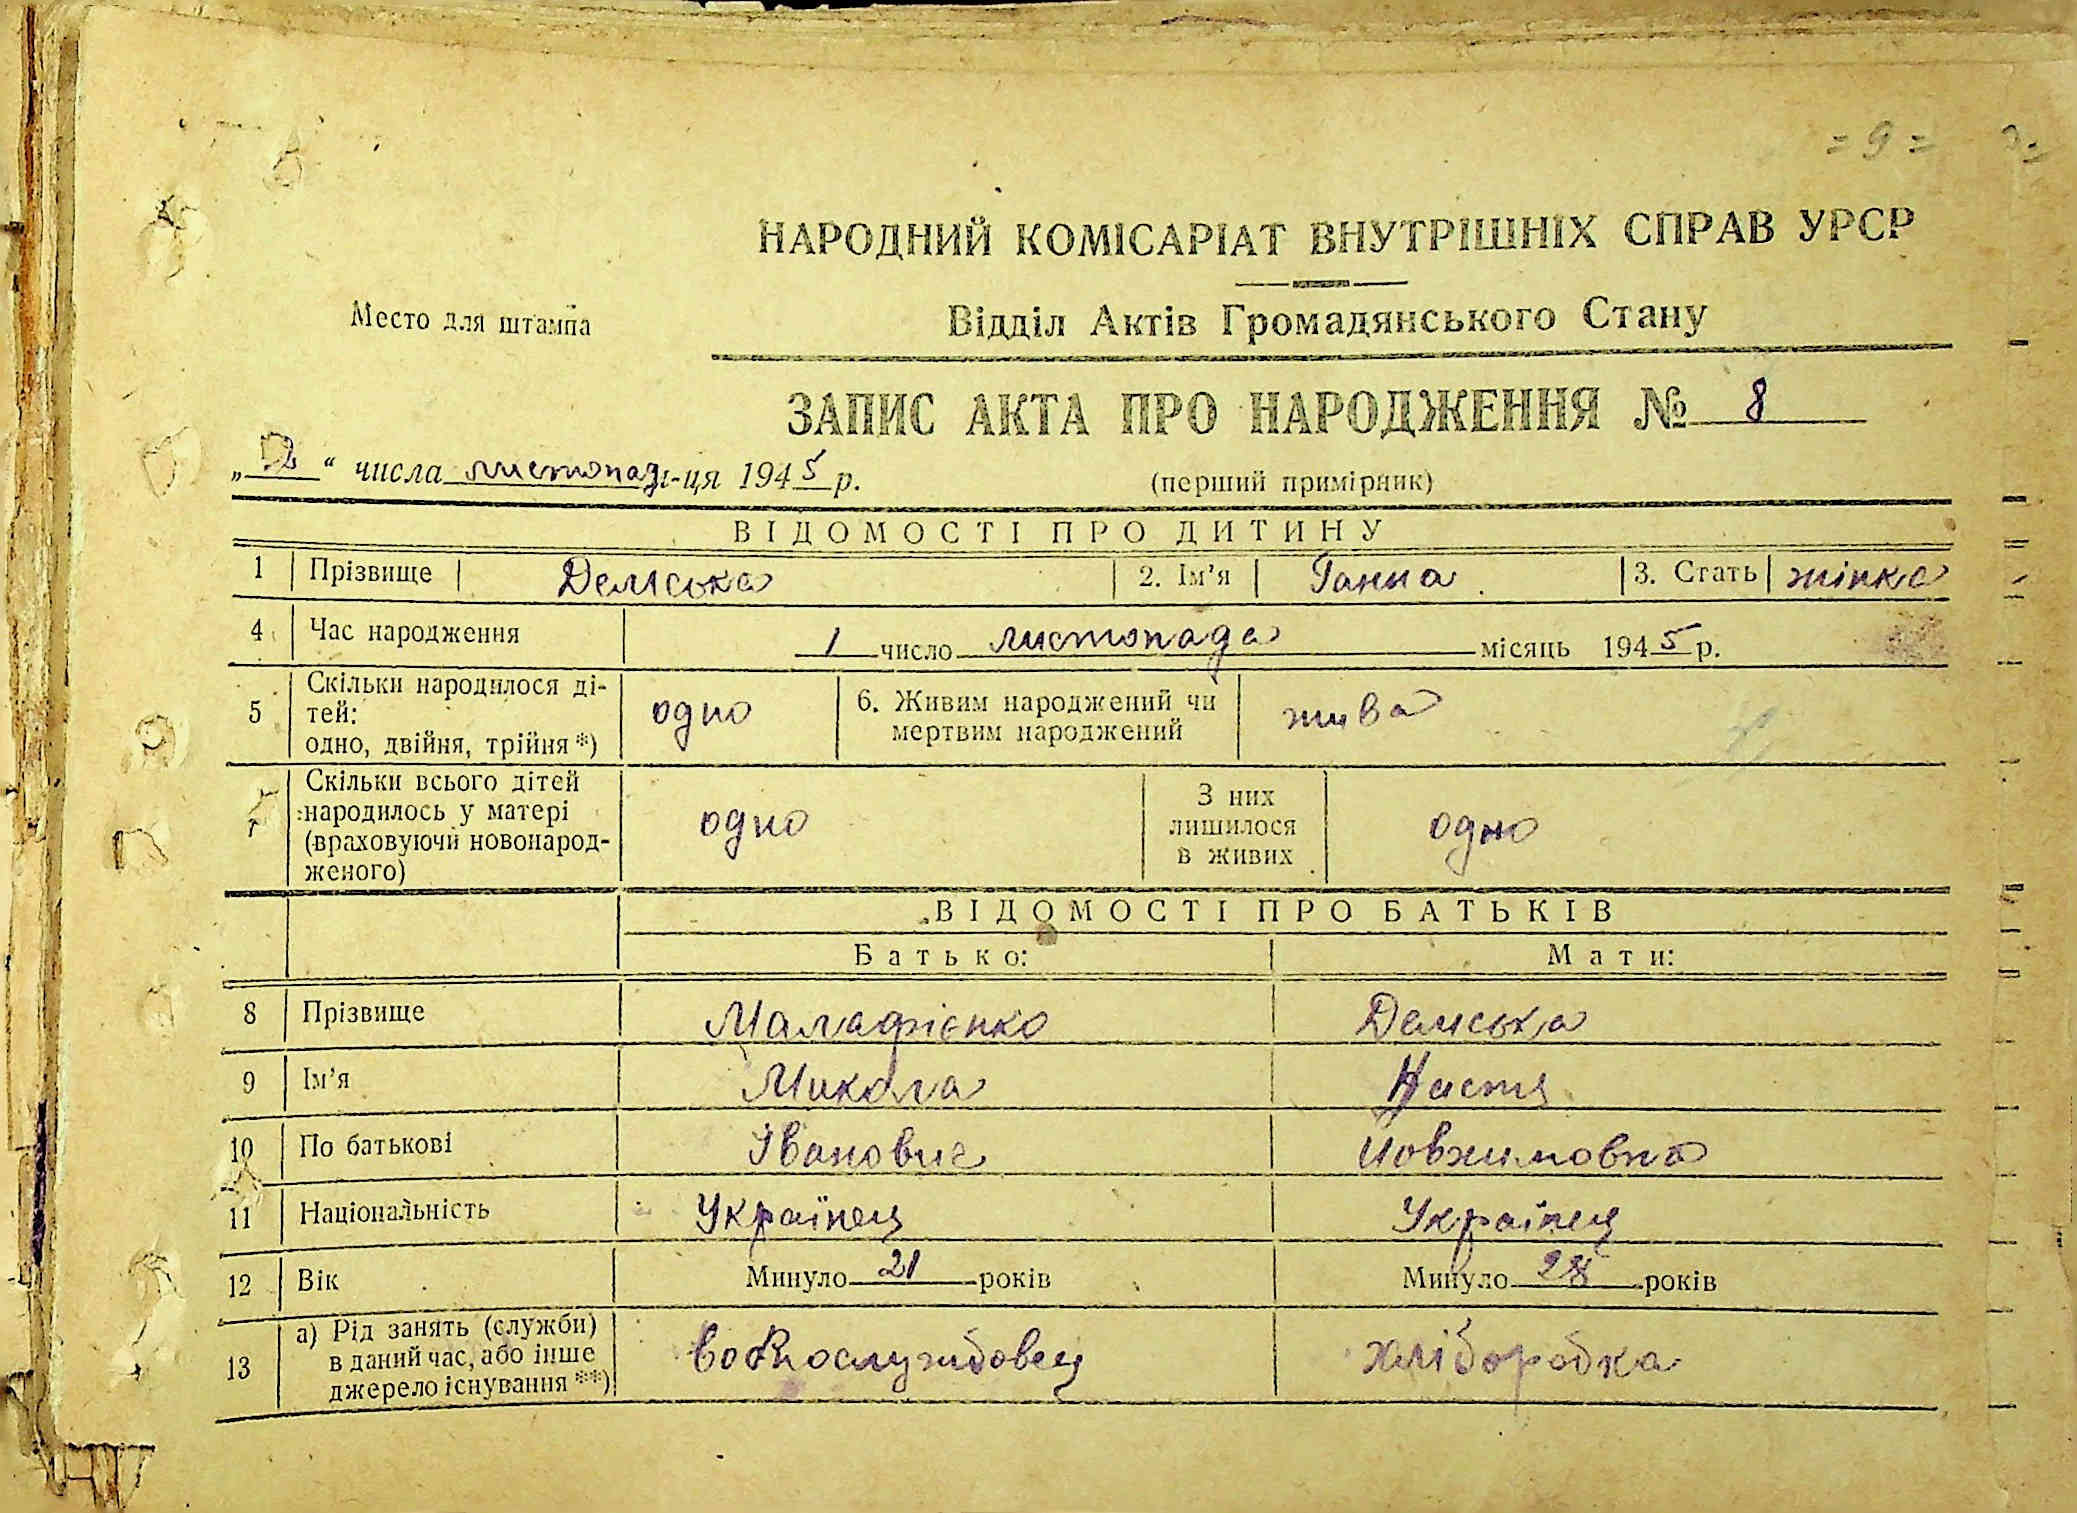 = 9 =
НАРОДНИЙ КОМІСАРІАТ ВНУТРІШНІХ СПРАВ УРСР
Место для штампа
Відділ Актів Громадянського Стану
ЗАПИС АКТА ПРО НАРОДЖЕННЯ № 8
„ 2 “ числа листопад м-ця 1945 р. (перший примірник)
ВІДОМОСТІ ПРО ДИТИНУ
1 Прізвище Демська 2. Ім'я Ганна 3. Стать жінка
4 Час народження 1 число листопада місяць 1945 р.
5 Скільки народилося ді-
тей:
одно, двійня, трійня *)
одно
6. Живим народжений чи
мертвим народжений
жива
7 Скільки всього дітей
народилось у матері
(враховуючи новонарод-
женого)
одно
З них
лишилося
в живих
одно
ВІДОМОСТІ ПРО БАТЬКІВ
Батько: Мати:
8 Прізвище Малафієнко Демська
9 Ім'я Микола Настя
10 По батькові Івановис Йовхимовна
11 Національність Українец Українец
12 Вік Минуло 21 років Минуло 28 років
13 а) Рід занять (служби)
в даний час, або інше
джерело існування **)
воєнослужбовец хліборобка